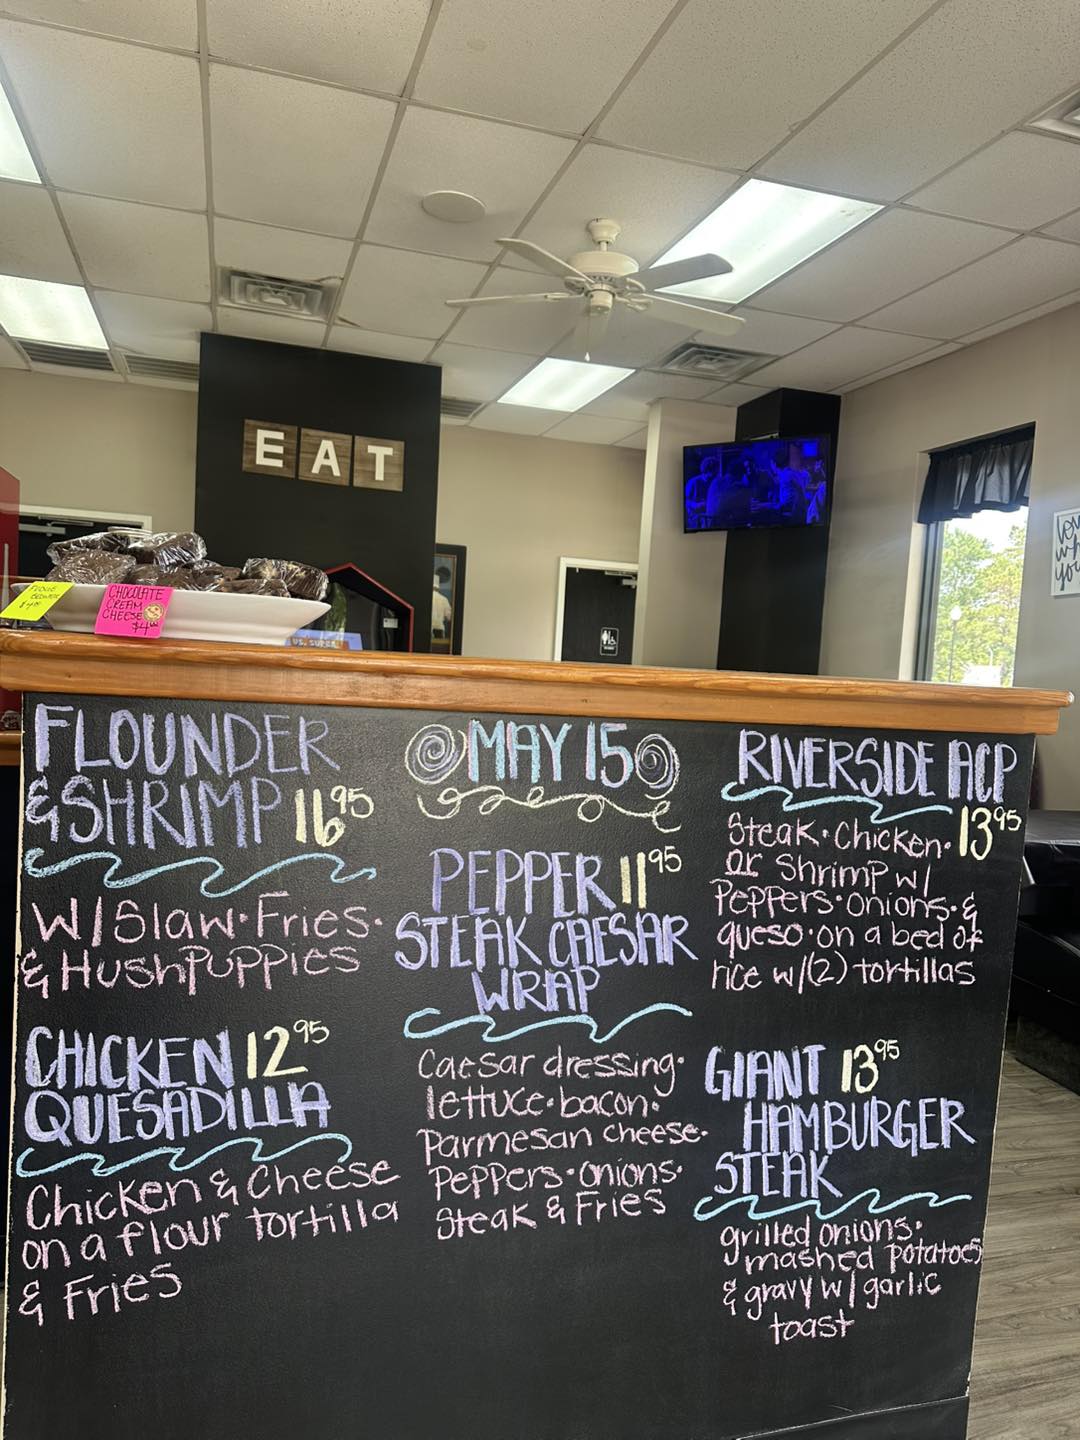 EAT
CHOCOLATE
CREAM
CHEESE
$4
FLOUNDER
& SHRIMP 16.95
W/ Slaw · Fries ·
& HushPuppies
CHICKEN 12.95
QUESADILLA
Chicken & Cheese
on a flour tortilla
& Fries
MAY 15
PEPPER 11.95
STEAK CAESAR
WRAP
Caesar dressing ·
lettuce · bacon ·
Parmesan cheese ·
Peppers · onions ·
Steak & Fries
RIVERSIDE ACP
Steak · Chicken · 13.95
or Shrimp w/
Peppers · onions · &
queso · on a bed of
rice w/ (2) tortillas
GIANT 13.95
HAMBURGER
STEAK
grilled onions ·
mashed potatoes
& gravy w/ garlic
toast